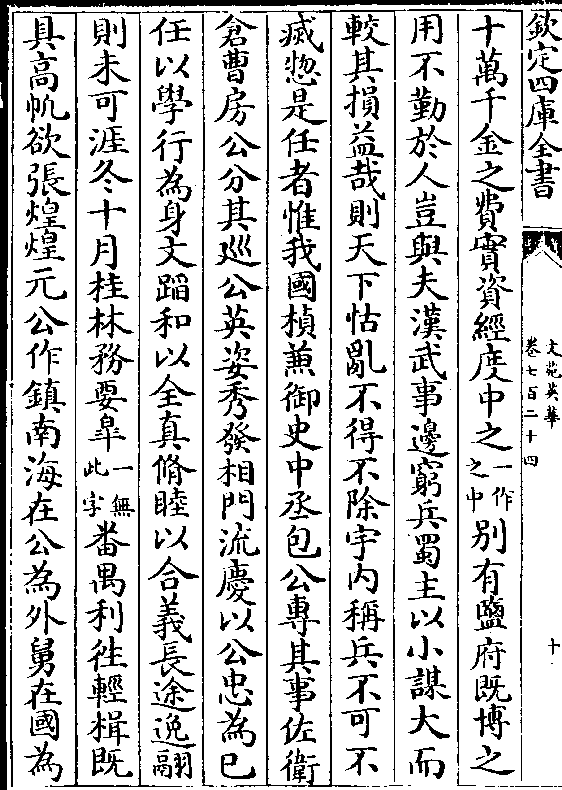 欽定四庫全書
文苑英華
卷七百二十四
十
十萬千金之費實資經度中之一作之中別有鹽府既博之
用不勤於人豈與夫漢武事邊窮兵蜀主以小謀大而
較其損益哉則天下怙亂不得不除宇內稱兵不可不
威惣是任者惟我國楨兼御史中丞包公專其事佐衛
倉曹房公分其廵公英姿秀發相門流慶以公忠為已
任以學行為身文蹈和以全真脩睦以合義長途逸翮
則未可涯冬十月桂林務要皐一無此字番禺利徃輕楫既
具高帆欲張煌煌元公作鎮南海在公為外舅在國為